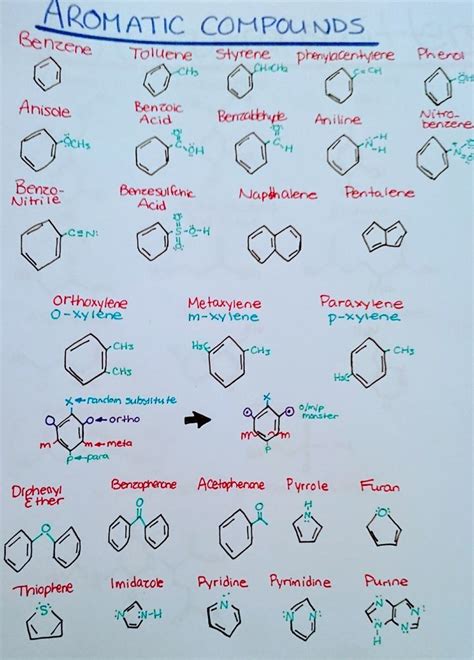 AROMATIC COMPOUNDS
Benzene
Toluene
Styrene
phenylacentylene
Phenol
CH₃
Anisole
Benzoic
Acid
Benzaldehyde
Aniline
Nitro-
benzene
OCH₃
C
OH
C
H
N-H
H
Benzo-
Nitrile
Benzesulfonic
Acid
Napthalene
Pentalene
C≡N:
O
S-O-H
O
Orthoxylene
Metaxylene
Paraxylene
O-xylene
m-xylene
p-xylene
CH₃
CH₃
H₃C
CH₃
CH₃
H₃C
X←random substitute
O
O←ortho
m
m←meta
p←para
X
o/m/p
monster
m
m
p
Dipheayl
Ether
Benzophenone
Acetophenone
Pyrrole
Furan
O
O
O
H
N
O
Thiophene
Imidazole
Pyridine
Pyrimidine
Purine
S
N
N-H
N
N
N
N
N
N
N
H